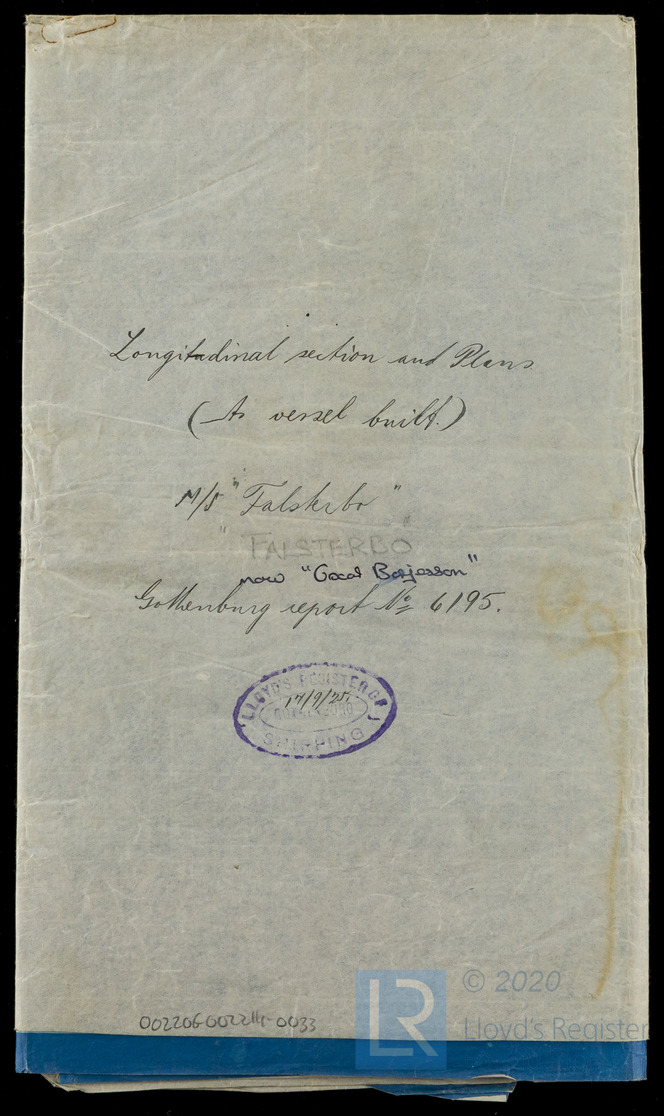 Longitudinal section and Plans
(As vessel built.)
M/S "Falsterbo"
"FALSTERBO"
now "Gocol Borjesson"
Gothenburg report No 6195.
LLOYD'S REGISTER OF
17/9/25
SHIPPING
© 2020
LR
Lloyd's Register